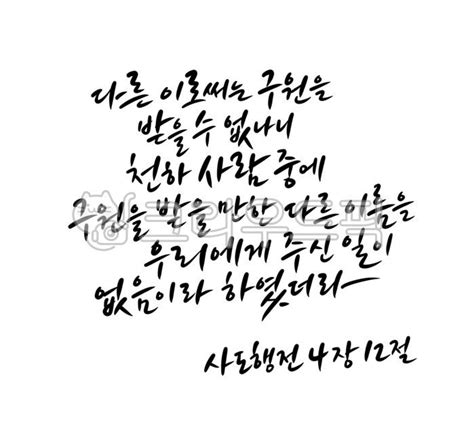 다른 이로써는 구원을
받을 수 없나니
천하 사람 중에
구원을 받을 만한 다른 이름을
우리에게 주신 일이
없음이라 하였더라
사도행전 4장 12절
크라우드픽